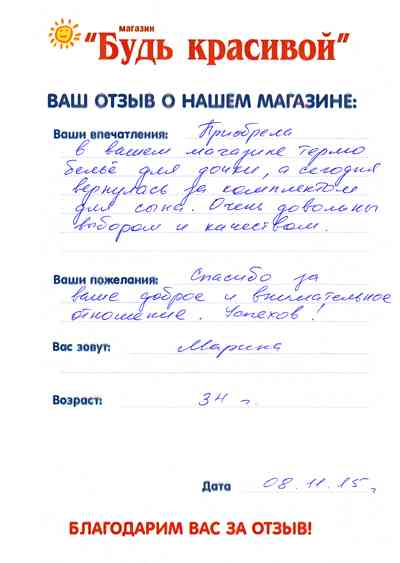 магазин
"Будь красивой"
ВАШ ОТЗЫВ О НАШЕМ МАГАЗИНЕ:
Ваши впечатления: Приобрела
в вашем магазине термо
бельё для дочки, а сегодня
вернулась за комплектом
для сына. Очень довольны
выбором и качеством.
Ваши пожелания: Спасибо за
ваше доброе и внимательное
отношение. Успехов!
Вас зовут: Марина
Возраст: 34 г.
Дата 08.11.15г
БЛАГОДАРИМ ВАС ЗА ОТЗЫВ!